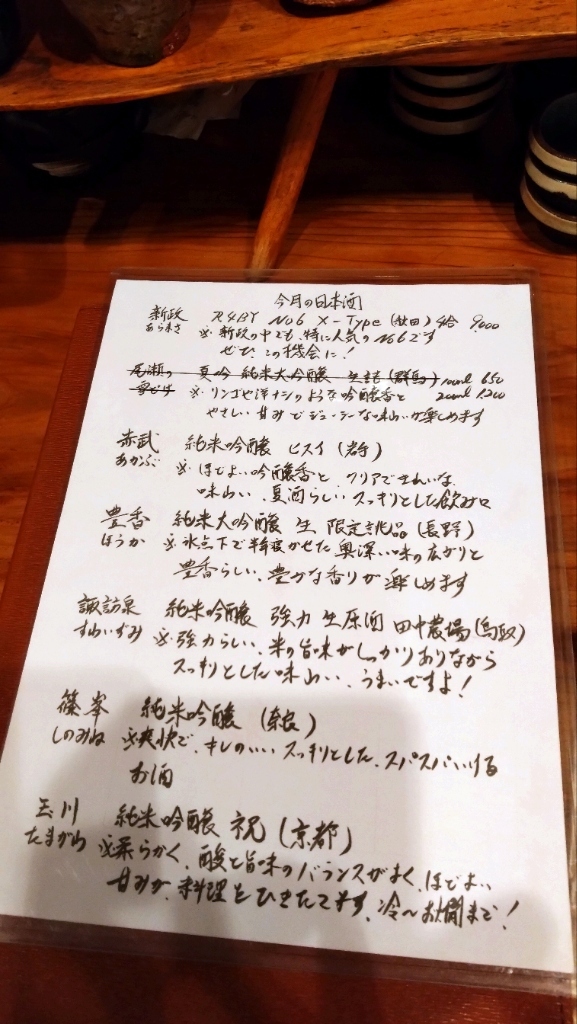 今月の日本酒
新政 R4BY No6 X-Type (秋田) 4合 9000
あらまさ ※新政の中でも、特に人気のNo6です
ぜひ、この機会に!
尾瀬の 夏吟 純米大吟醸 生詰 (群馬) 100ml 650
雪どけ ※リンゴや洋ナシのような吟醸香と 200ml 1200
やさしい甘みでジューシーな味わいが楽しめます
赤武 純米吟醸 ヒスイ (岩手)
あかぶ ※ほどよい吟醸香と、クリアできれいな
味わい、夏酒らしいスッキリとした飲み口
豊香 純米大吟醸 生 限定 (長野)
ほうか ※氷点下で半年寝かせた奥深い味の広がりと
豊香らしい、豊かな香りが楽しめます
諏訪泉 純米吟醸 強力 生原酒 田中農場 (鳥取)
すわいずみ ※強力らしい、米の旨味がしっかりありながら
スッキリとした味わい、うまいですよ!
篠峯 純米吟醸 (奈良)
しのみね ※爽快で、キレのいいスッキリとした、スパスパいける
お酒
玉川 純米吟醸 祝 (京都)
たまがわ ※柔らかく、酸と旨味のバランスがよく、ほどよい
甘みが、料理をひきたてます、冷〜お燗まで!